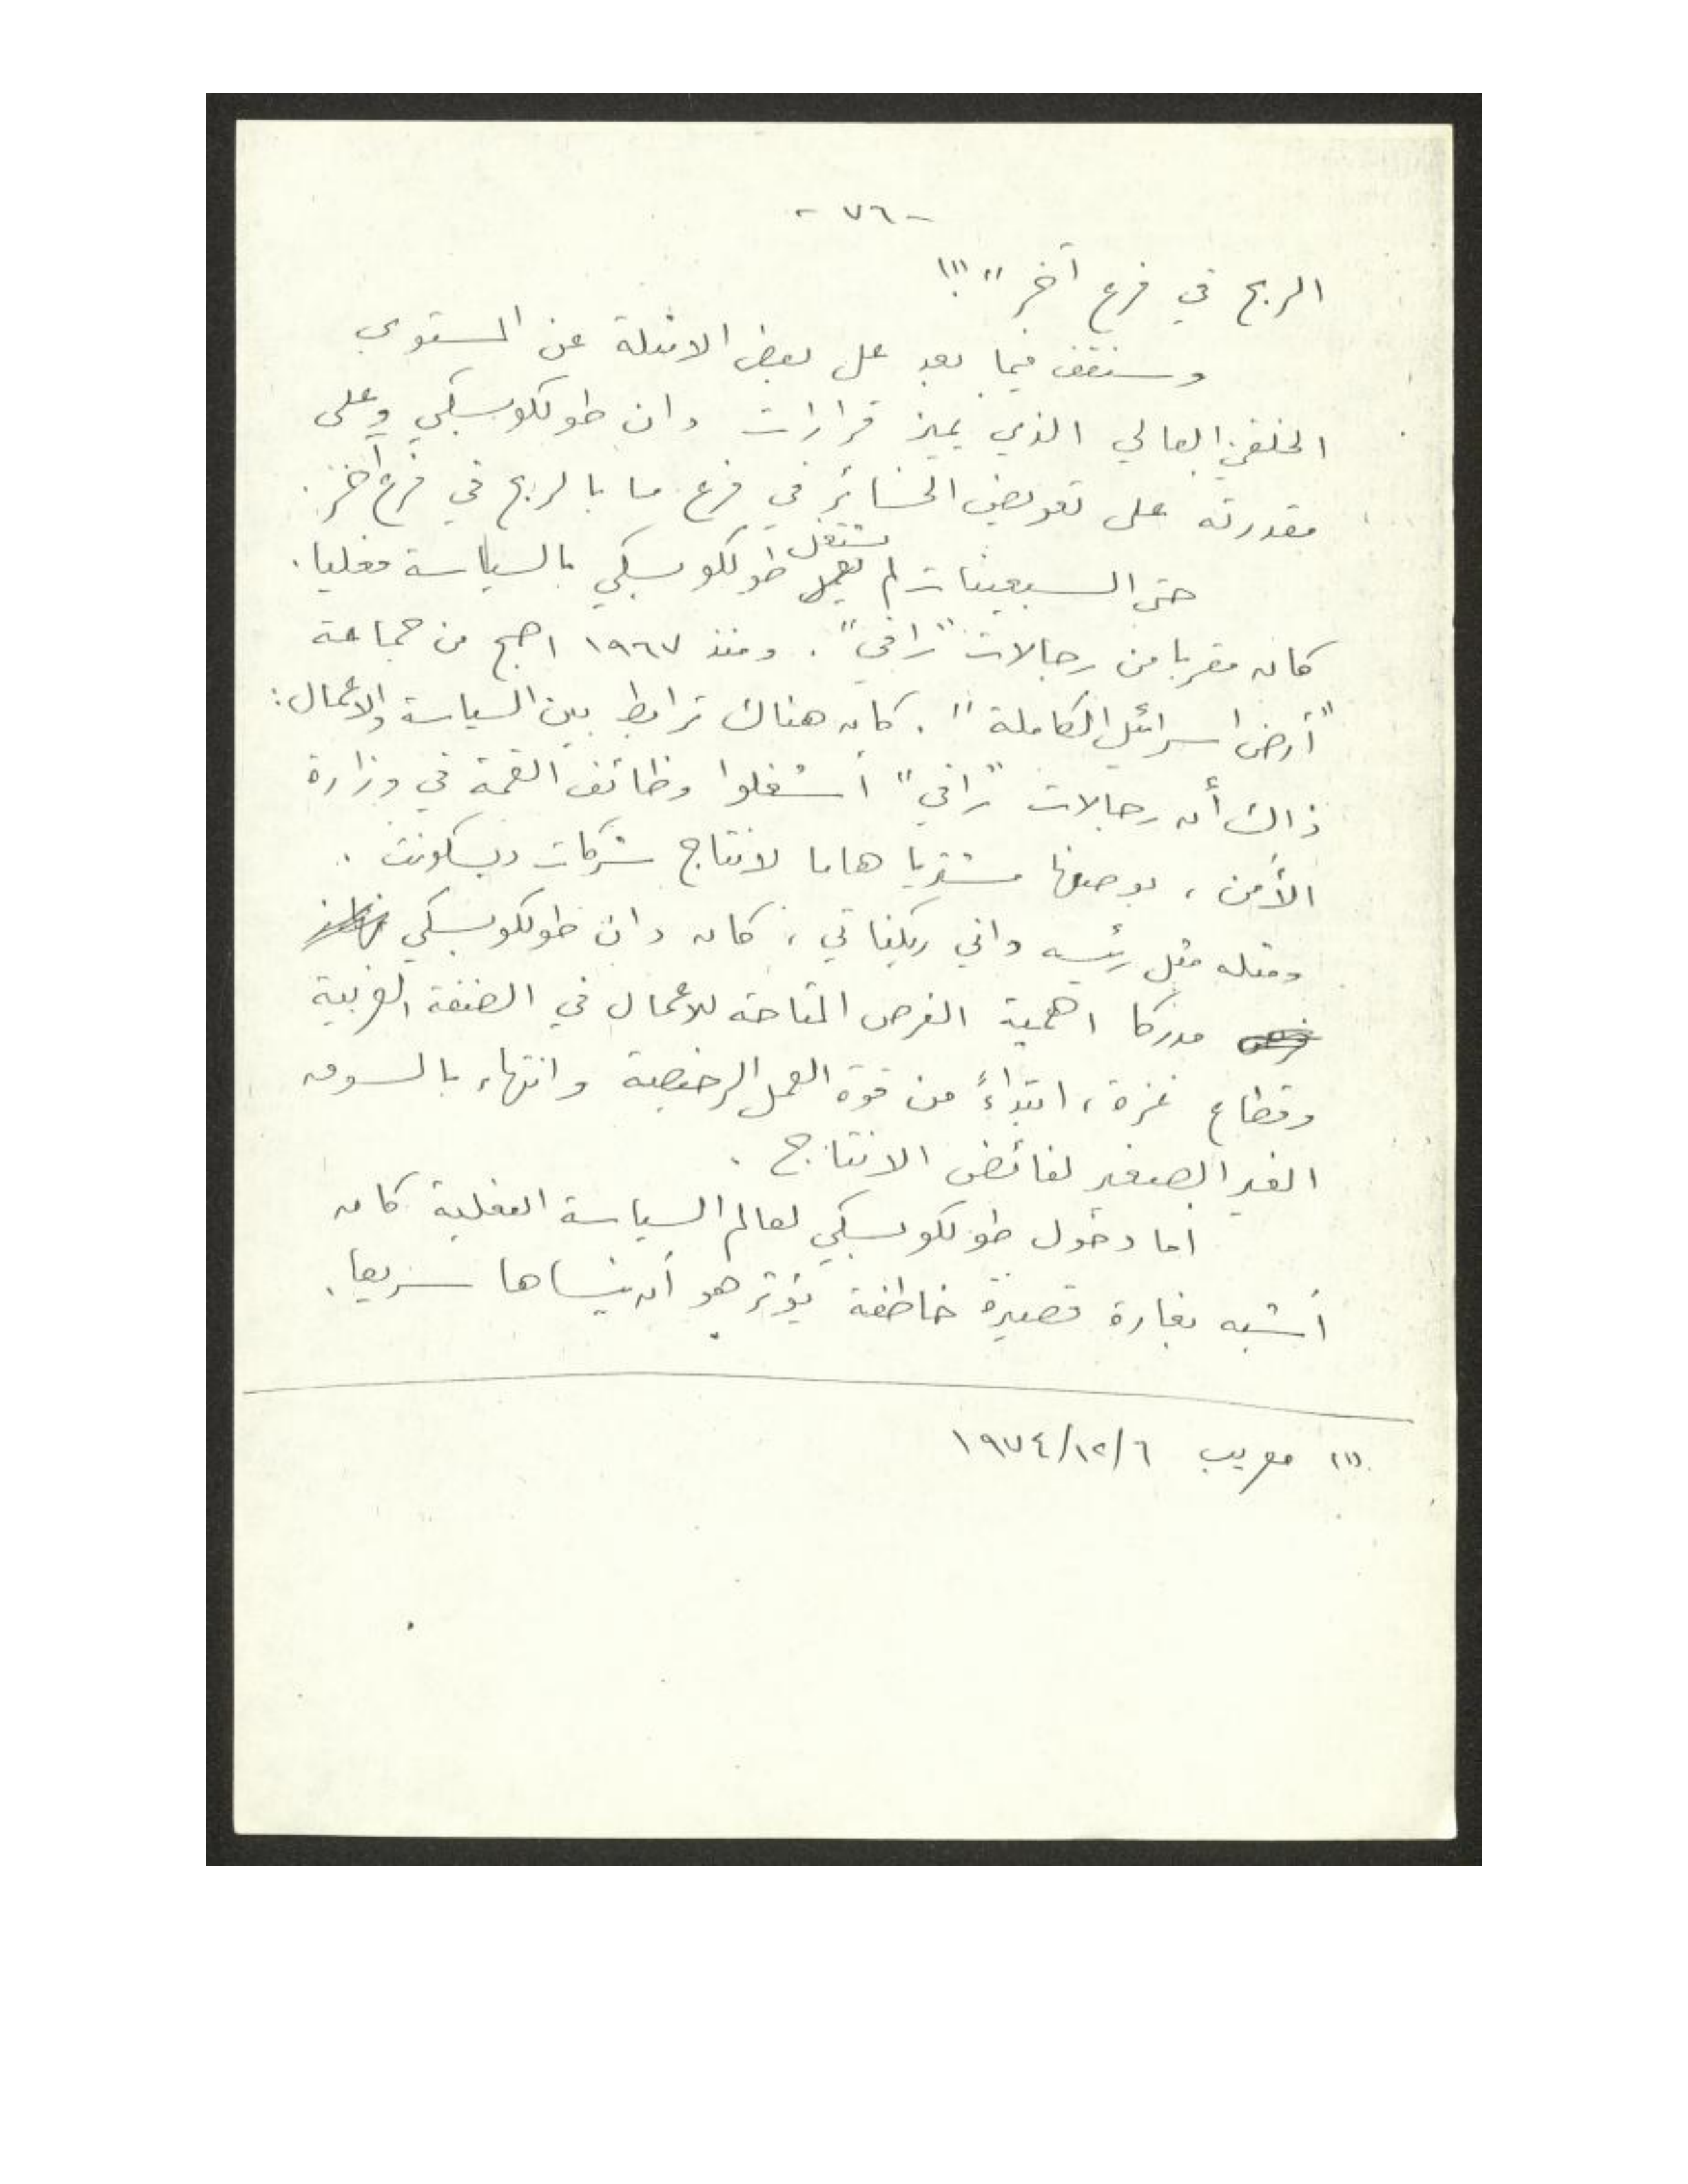 - ٧٦ -
الربح في فرع آخر"!(١)
وسنقف فيما بعد على بعض الامثلة عن المستوى
الخلقي العالي الذي يميز قرارات دان طولكوبسكي وعلى
مقدرته على تعويض الخسائر في فرع ما بالربح في فرع آخر.
حتى السبعينات لم يشتغل طولكوبسكي بالسياسة فعليا.
كان مقربا من رجالات "رافي". ومنذ ١٩٦٧ اصبح من جماعة
"أرض اسرائيل الكاملة". كان هناك ترابط بين السياسة والاعمال:
ذاك أن رجالات "رافي" أشغلوا وظائف القمة في وزارة
الأمن، بوصفها مشتريا هاما لانتاج شركات ديسكونت.
ومثله مثل رئيسه داني ريكناتي، كان دان طولكوبسكي
مدركا اهمية الفرص المتاحة للاعمال في الضفة الغربية
وقطاع غزة، ابتداءً من قوة العمل الرخيصة وانتهاء بالسوق
الغير الصغير لفائض الانتاج.
اما دخول طولكوبسكي لعالم السياسة الفعلية كان
أشبه بغارة قصيرة خاطفة يؤثر هو أن ينساها سريعا.
(١) معريب ٦/١٢/١٩٧٤